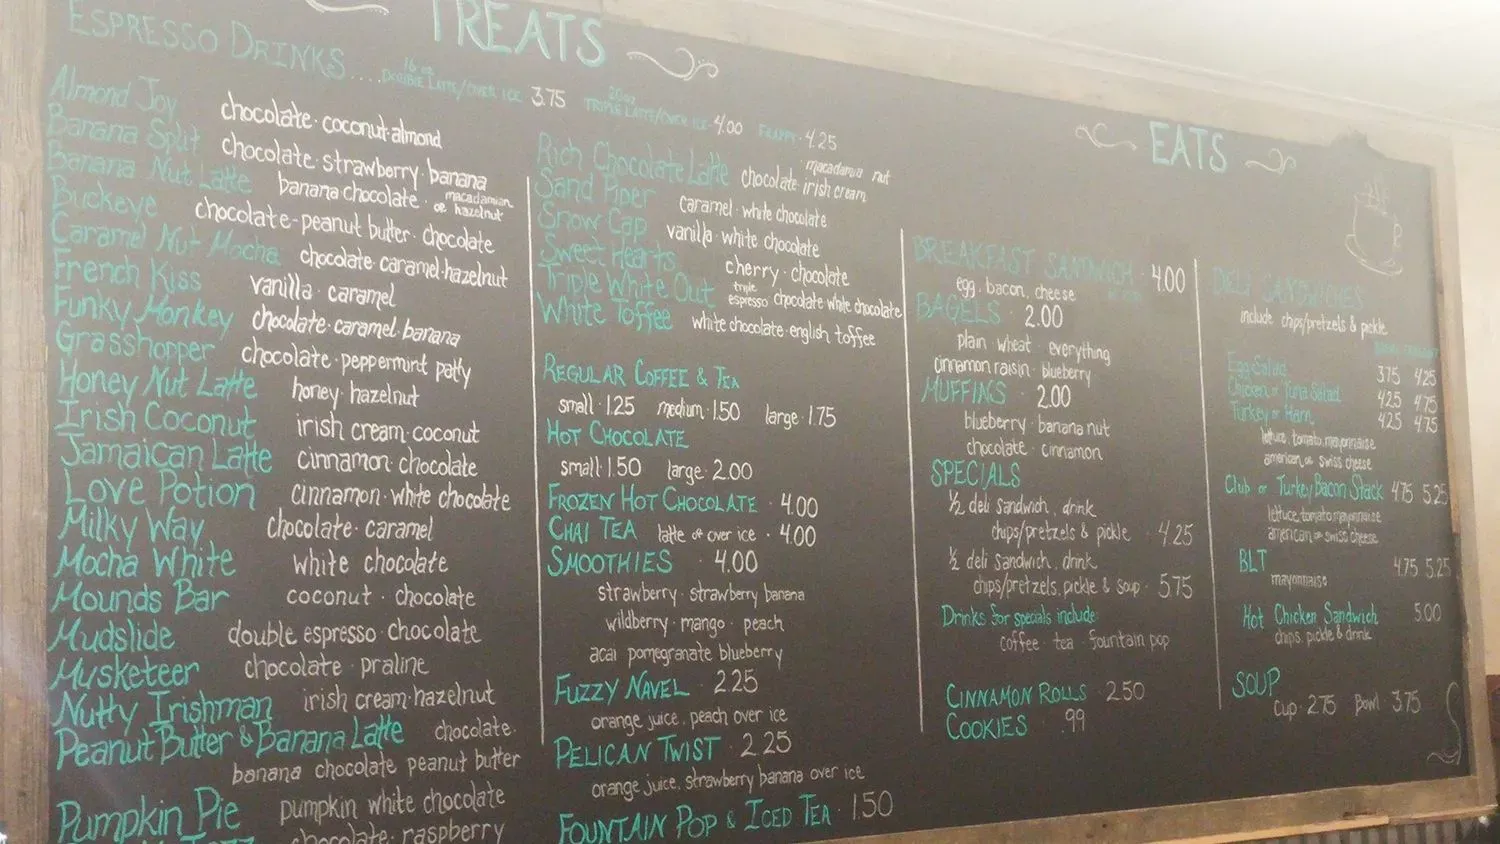 TREATS
ESPRESSO DRINKS.....16 oz DOUBLE LATTE/OVER ICE 3.75 20 oz TRIPLE LATTE/OVER ICE · 4.00 FRAPPE · 4.25
Almond Joy chocolate · coconut · almond
Banana Split chocolate · strawberry · banana
Banana Nut Latte banana chocolate · macadamian or hazelnut
Buckeye chocolate - peanut butter · chocolate
Caramel Nut Mocha chocolate · caramel · hazelnut
French Kiss vanilla · caramel
Funky Monkey chocolate · caramel · banana
Grasshopper chocolate · peppermint patty
Honey Nut Latte honey · hazelnut
Irish Coconut irish cream · coconut
Jamaican Latte cinnamon · chocolate
Love Potion cinnamon · white chocolate
Milky Way chocolate · caramel
Mocha White white chocolate
Mounds Bar coconut · chocolate
Mudslide double espresso · chocolate
Musketeer chocolate · praline
Nutty Irishman irish cream · hazelnut
Peanut Butter & Banana Latte chocolate ·
banana chocolate peanut butter
Pumpkin Pie pumpkin white chocolate
chocolate · raspberry
Rich Chocolate Latte chocolate · irish cream · macadamia nut
Sand Piper caramel · white chocolate
Snow Cap vanilla · white chocolate
Sweet Hearts cherry · chocolate
Triple White Out triple espresso · chocolate white chocolate
White Toffee white chocolate · english toffee
REGULAR COFFEE & TEA
small · 1.25 medium · 1.50 large · 1.75
HOT CHOCOLATE
small · 1.50 large · 2.00
FROZEN HOT CHOCOLATE · 4.00
CHAI TEA latte or over ice · 4.00
SMOOTHIES · 4.00
strawberry · strawberry banana
wildberry · mango · peach
acai pomegranate blueberry
FUZZY NAVEL 2.25
orange juice, peach over ice
PELICAN TWIST · 2.25
orange juice, strawberry banana over ice
FOUNTAIN POP & ICED TEA · 1.50
EATS
BREAKFAST SANDWICH · 4.00
egg, bacon, cheese
BAGELS · 2.00
plain · wheat · everything
cinnamon raisin · blueberry
MUFFINS · 2.00
blueberry · banana nut
chocolate · cinnamon
SPECIALS
½ deli sandwich, drink
chips/pretzels & pickle · 4.25
½ deli sandwich, drink
chips/pretzels, pickle & soup · 5.75
Drinks for specials include:
coffee tea fountain pop
CINNAMON ROLLS · 2.50
COOKIES .99
DELI SANDWICHES
include chips/pretzels & pickle
Egg Salad 3.75 4.25
Chicken or Tuna Salad 4.25 4.75
Turkey or Ham 4.25 4.75
lettuce, tomato, mayonnaise
american or swiss cheese
Club or Turkey Bacon Stack 4.75 5.25
lettuce, tomato, mayonnaise
american or swiss cheese
BLT 4.75 5.25
mayonnaise
Hot Chicken Sandwich 5.00
chips, pickle & drink
SOUP
Cup · 2.75 Bowl · 3.75